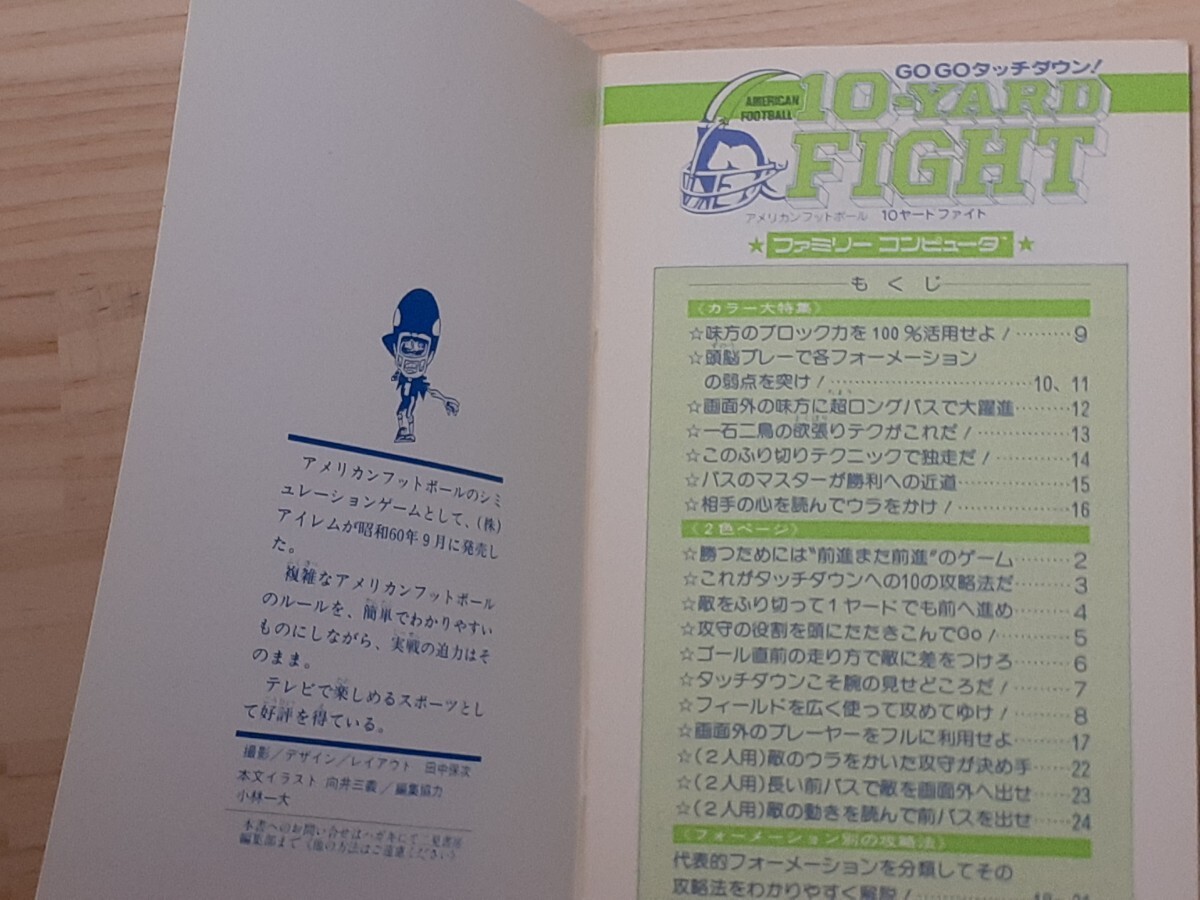 アメリカンフットボールのシミ
ュレーションゲームとして、(株)
アイレムが昭和60年9月に発売し
た。
複雑なアメリカンフットボール
のルールを、簡単でわかりやすい
ものにしながら、実戦の迫力はそ
のまま。
テレビで楽しめるスポーツとし
て好評を得ている。
撮影／デザイン／レイアウト 田中保次
本文イラスト 向井三義／編集協力
小林一大
本書へのお問い合せはハガキにて二見書房
編集部まで〈他の方法はご遠慮ください〉
GO GOタッチダウン!
AMERICAN
FOOTBALL
10-YARD
FIGHT
アメリカンフットボール 10ヤードファイト
★ファミリー コンピュータ★
もくじ
〈カラー大特集〉
☆味方のブロック力を100％活用せよ！………9
☆頭脳プレーで各フォーメーション
の弱点を突け！……………………………10、11
☆画面外の味方に超ロングパスで大躍進………12
☆一石二鳥の欲張りテクがこれだ！……………13
☆このふり切りテクニックで独走だ！…………14
☆パスのマスターが勝利への近道………………15
☆相手の心を読んでウラをかけ！………………16
〈2色ページ〉
☆勝つためには“前進また前進”のゲーム………2
☆これがタッチダウンへの10の攻略法だ………3
☆敵をふり切って1ヤードでも前へ進め………4
☆攻守の役割を頭にたたきこんでGo！…………5
☆ゴール直前の走り方で敵に差をつけろ………6
☆タッチダウンこそ腕の見せどころだ！………7
☆フィールドを広く使って攻めてゆけ！………8
☆画面外のプレーヤーをフルに利用せよ………17
☆(2人用)敵のウラをかいた攻守が決め手……22
☆(2人用)長い前パスで敵を画面外へ出せ……23
☆(2人用)敵の動きを読んで前パスを出せ……24
〈フォーメーション別の攻略法〉
代表的フォーメーションを分類してその
攻略法をわかりやすく解説！………18-21